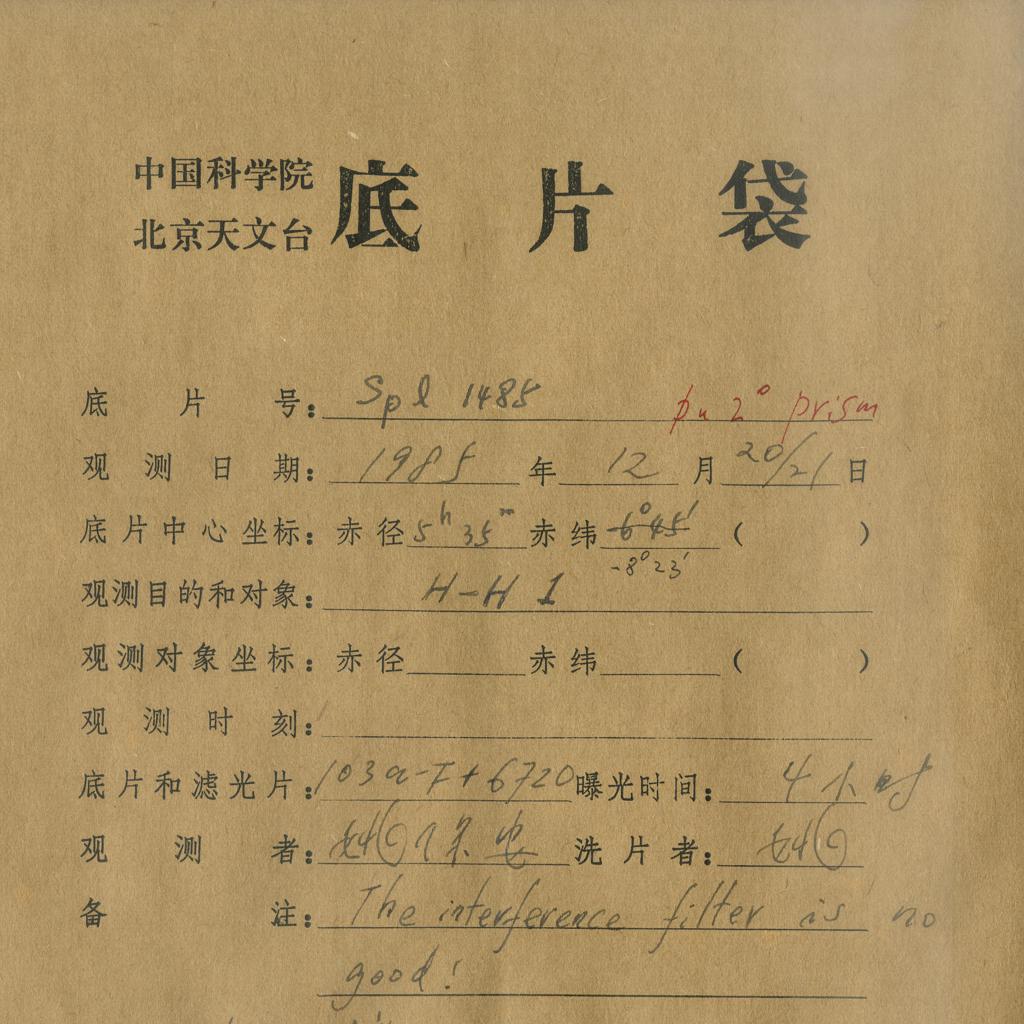 中国科学院
北京天文台
底片袋
底片号: Spl 1485 pu 2° prism
观测日期: 1985 年 12 月 20/21 日
底片中心坐标: 赤径 5h 35m 赤纬 6°45' ( )
-8°23'
观测目的和对象: H-H 1
观测对象坐标: 赤径 赤纬 ( )
观测时刻:
底片和滤光片: 103a-F+6720 曝光时间: 4小时
观测者: 洗片者:
备注: The interference filter is no
good!